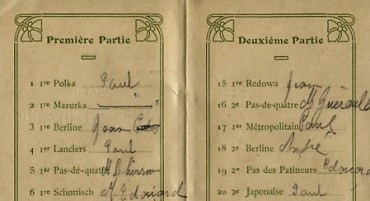 Première Partie
1 1re Polka Paul
2 1re Mazurka
3 1re Berline Jean
4 1er Lanciers Paul
5 1er Pas-de-quatre
6 1re Schottisch M Edouard
Deuxième Partie
15 1re Redowa Jean
16 2e Pas-de-quatre M
17 1er Métropolitain Paul
18 2e Berline André
19 2e Pas des Patineurs Edouard
20 2e Japonaise Paul